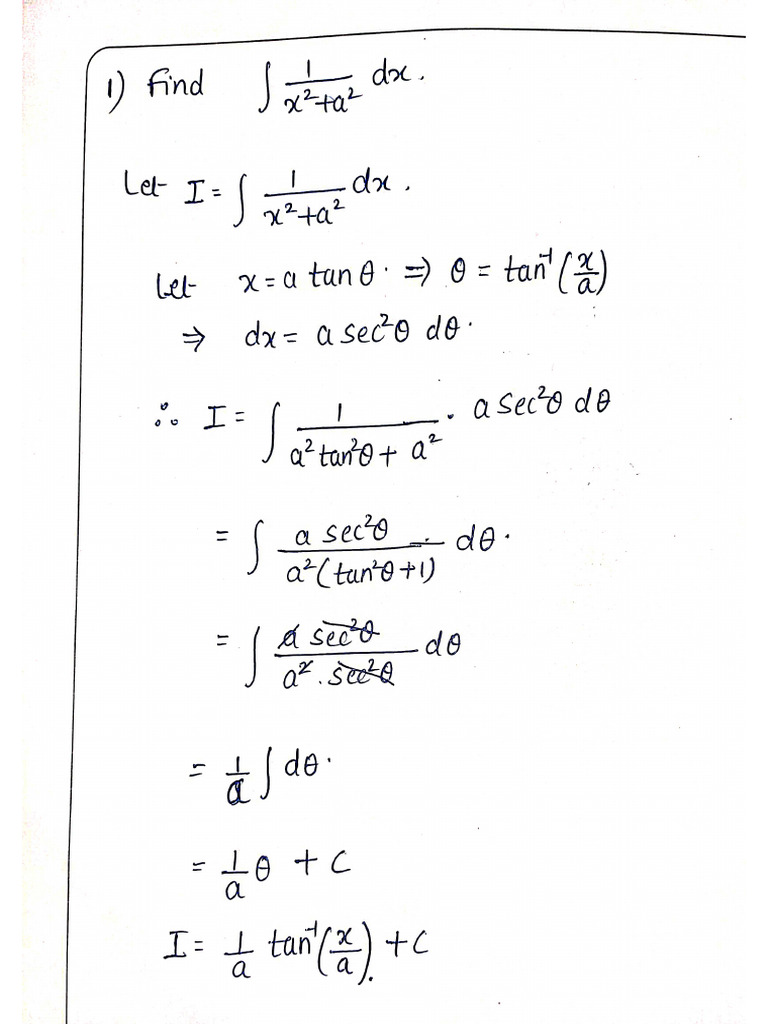 1) Find ∫ 1/(x²+a²) dx.
Let I = ∫ 1/(x²+a²) dx.
Let x = a tan θ. ⇒ θ = tan⁻¹(x/a)
⇒ dx = a sec²θ dθ.
∴ I = ∫ 1/(a² tan²θ + a²) . a sec²θ dθ
= ∫ a sec²θ/(a²(tan²θ+1)) . dθ.
= ∫ a sec²θ/(a² . sec²θ) dθ
= 1/a ∫ dθ.
= 1/a θ + c
I = 1/a tan⁻¹(x/a). + c